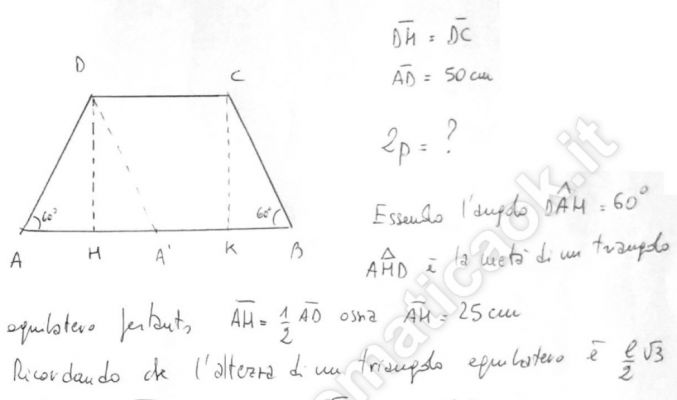 D̅H̅ = D̅C̅
A̅D̅ = 50 cm
D
C
2p = ?
60°
60°
A
H
A'
K
B
Essendo l'angolo DÂH = 60°
AHD è la metà di un triangolo
equilatero pertanto A̅H̅ = 1/2 A̅D̅ ossia A̅H̅ = 25 cm
Ricordando che l'altezza di un triangolo equilatero è ℓ/2 √3
maticaok.it